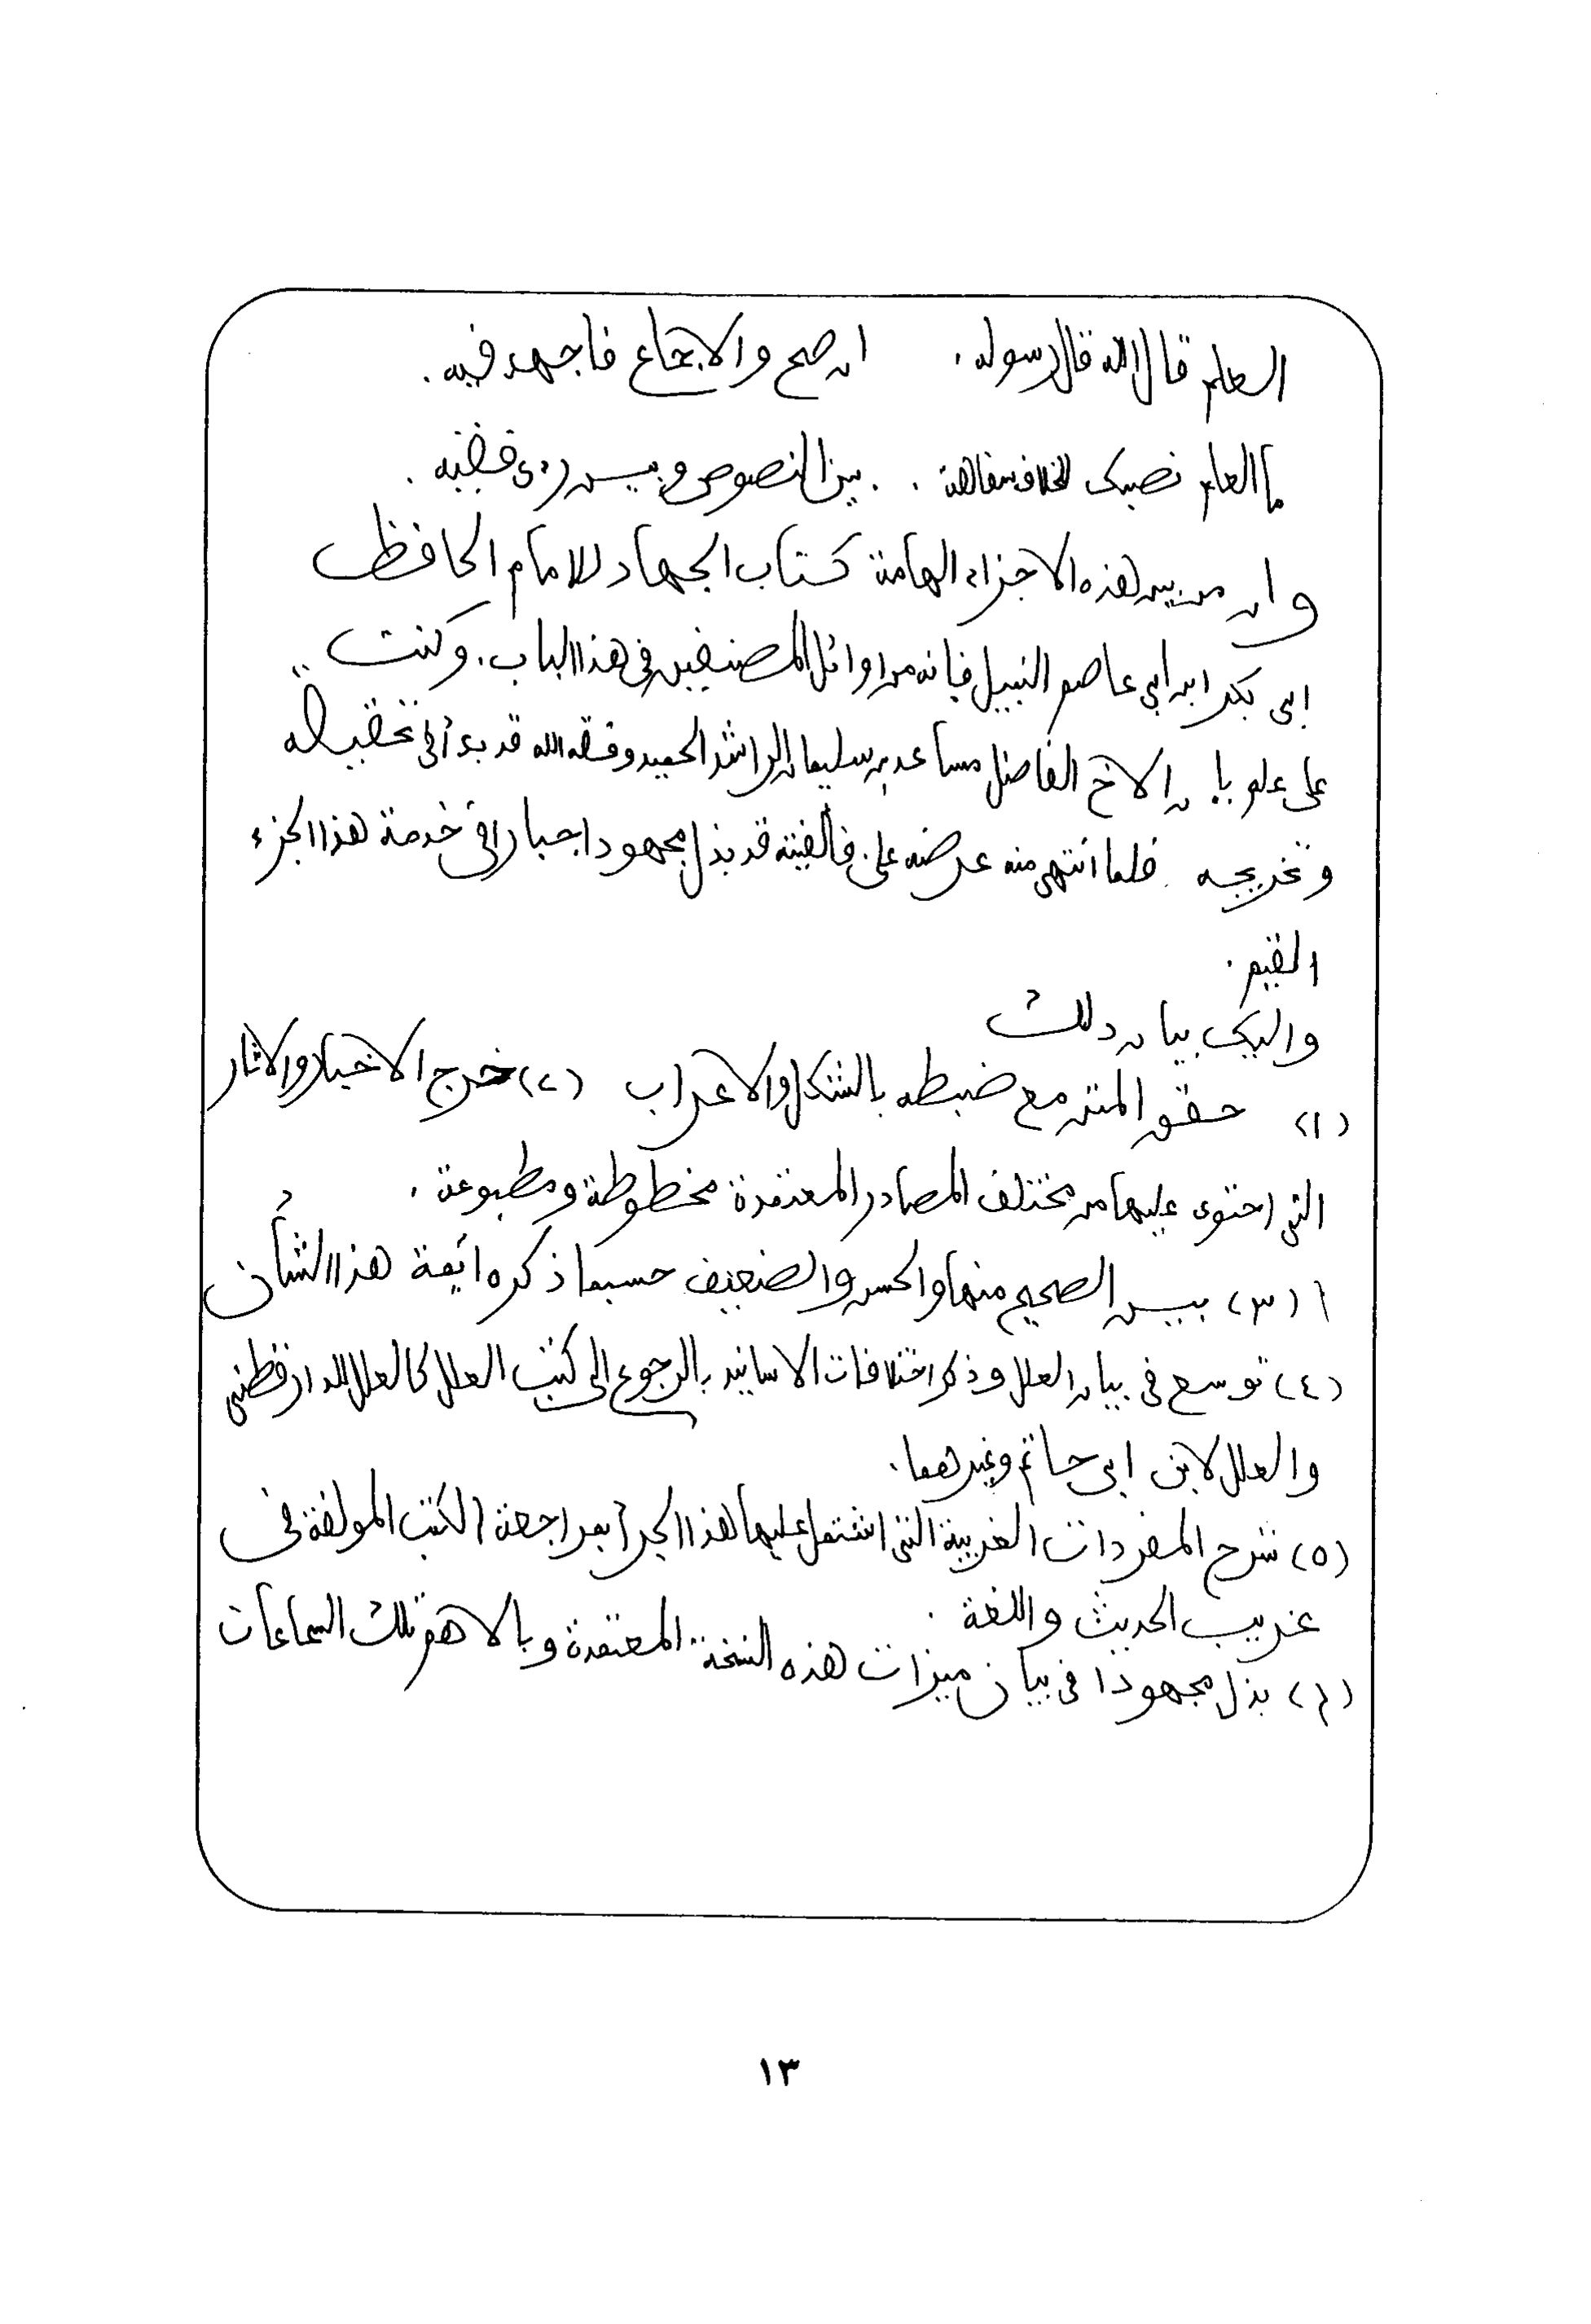 العلم قال الله قال رسوله . ان صح والاجماع فاجهد فيه .
ما العلم نصبك للخلاف سفاهة . . بين النصوص وبين رأى فقيه .
وان من بين هذه الاجزاء الهامة كتاب الجهاد للامام الحافظ
ابى بكر ابن ابي عاصم النبيل فانه من اوائل المصنفين فى هذا الباب . وكنت
على علم بان الاخ الفاضل مساعد بن سليمان الراشد الحميد وفقه الله قد بدء فى تحقيقه
وتخريجه فلما انتهى منه عرضه على . فالفيته قد بذل مجهودا جبارا فى خدمة هذا الجزء
القيم .
واليك بيان ذلك
(١) حقق المتن مع ضبطه بالشكل والاعراب (٢) خرج الاخبار والاثار
التى احتوى عليها من مختلف المصادر المعتمدة مخطوطة ومطبوعة .
(٣) بين الصحيح منها والحسن والضعيف حسبما ذكره ائمة هذا الشأن
(٤) توسع فى بيان العلل وذكر اختلافات الاسانيد بالرجوع الى كتب العلل كالعلل للدارقطنى
والعلل لابن ابى حاتم وغيرهما .
(٥) شرح المفردات الغريبة التى اشتمل عليها هذا الجزأ بمراجعة الكتب المولفة فى
غريب الحديث واللغة .
(٦) بذل مجهودا فى بيان ميزات هذه النسخة المعتمدة وبالاهم تلك السماعات
١٣